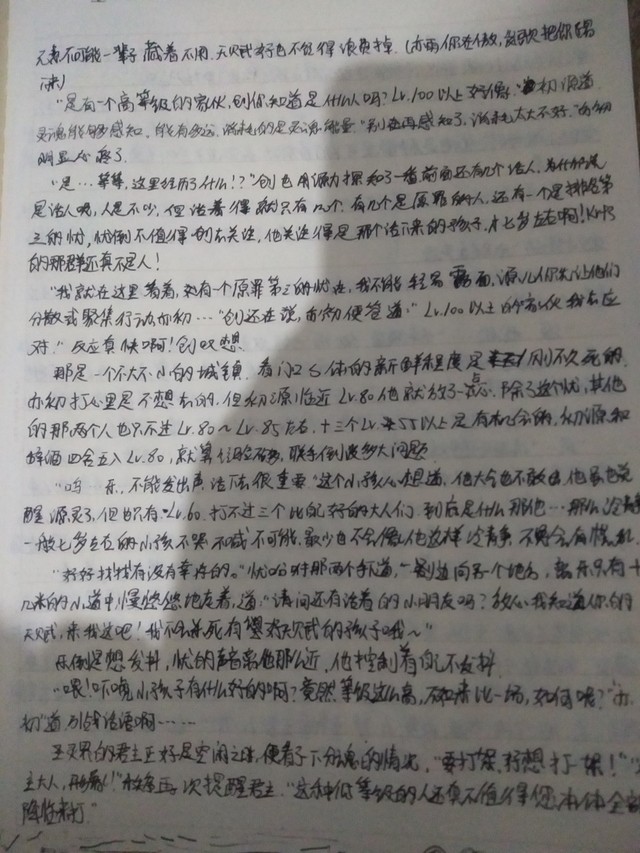 不可能一辈子藏着不用，天赋好也不能得浪费掉。（
来）
"是有一个高等级的家伙，创你知道是什么人吗？Lv.100以上好像。"初源道
灵魂能够感知，能有多远，消耗的是灵魂能量。"别在再感知了，消耗太大不好。"亦初
明显心疼了。
"是…等等，这里经历了什么！？"创也用源力探知了一番前面还有几个活人，为什么说
是活人呢，人是不少，但活着得就只有几个，有几个是原罪的人，还有一个是排名第
三的忧，忧倒不值得创去关注，他关注得是那个活下来的孩子，才七岁左右啊！
的那群还真不是人！
"我就在这里看着，如有一个原罪第三的忧在，我不能轻易露面，源儿你先让他们
分散或聚集行动亦初…"创还在说，亦初便答道："Lv.100以上的家伙我去应
对。"反应真快啊！创叹想。
那是一个不大不小的城镇，看门口尸体的新鲜程度是刚不久死的，
亦初打心里是不想去的，但初源临近Lv.80他就放了一点心，除了这个忧，其他
的那两个人也只不过Lv.80～Lv.85左右，十三个Lv.55以上是有机会的，初源和
醉酒四舍五入Lv.80，就算经验不够，联手倒没多大问题。
"呜…乐，不能发出声，活下去很重要"这个小孩心想道，他大气也不敢出，他虽也觉
醒源灵了，但也只有Lv.60，打不过三个比他好的大人们，到底是什么那他…那么冷静
一般七岁左右的小孩不哭不喊不可能，最少也不会像他这样冷静，不免会有慌乱。
"好好找找有没有幸存的。"忧吩咐那两个手下道，一剑道向另个地方，离乐只有十
几米的小道中慢悠悠地走着，道："请问还有活着的小朋友吗？放心我知道你的
天赋，来我这吧！我不会杀死有天赋的孩子哦～"
乐倒是想发抖，忧的声音离他那么近，他控制着自己不发抖
"喂！吓唬小孩子有什么好的啊？竟然等级这么高，不如来比一场，如何呢？"亦
初道，引战话语啊……
灵界的君主正好是空闲之时，便看了下分魂的情况，"要打架，好想打一架！"
主大人，形象！"再次提醒君主，"这种低等级的人还真不值得您本体全部
降临来打。"